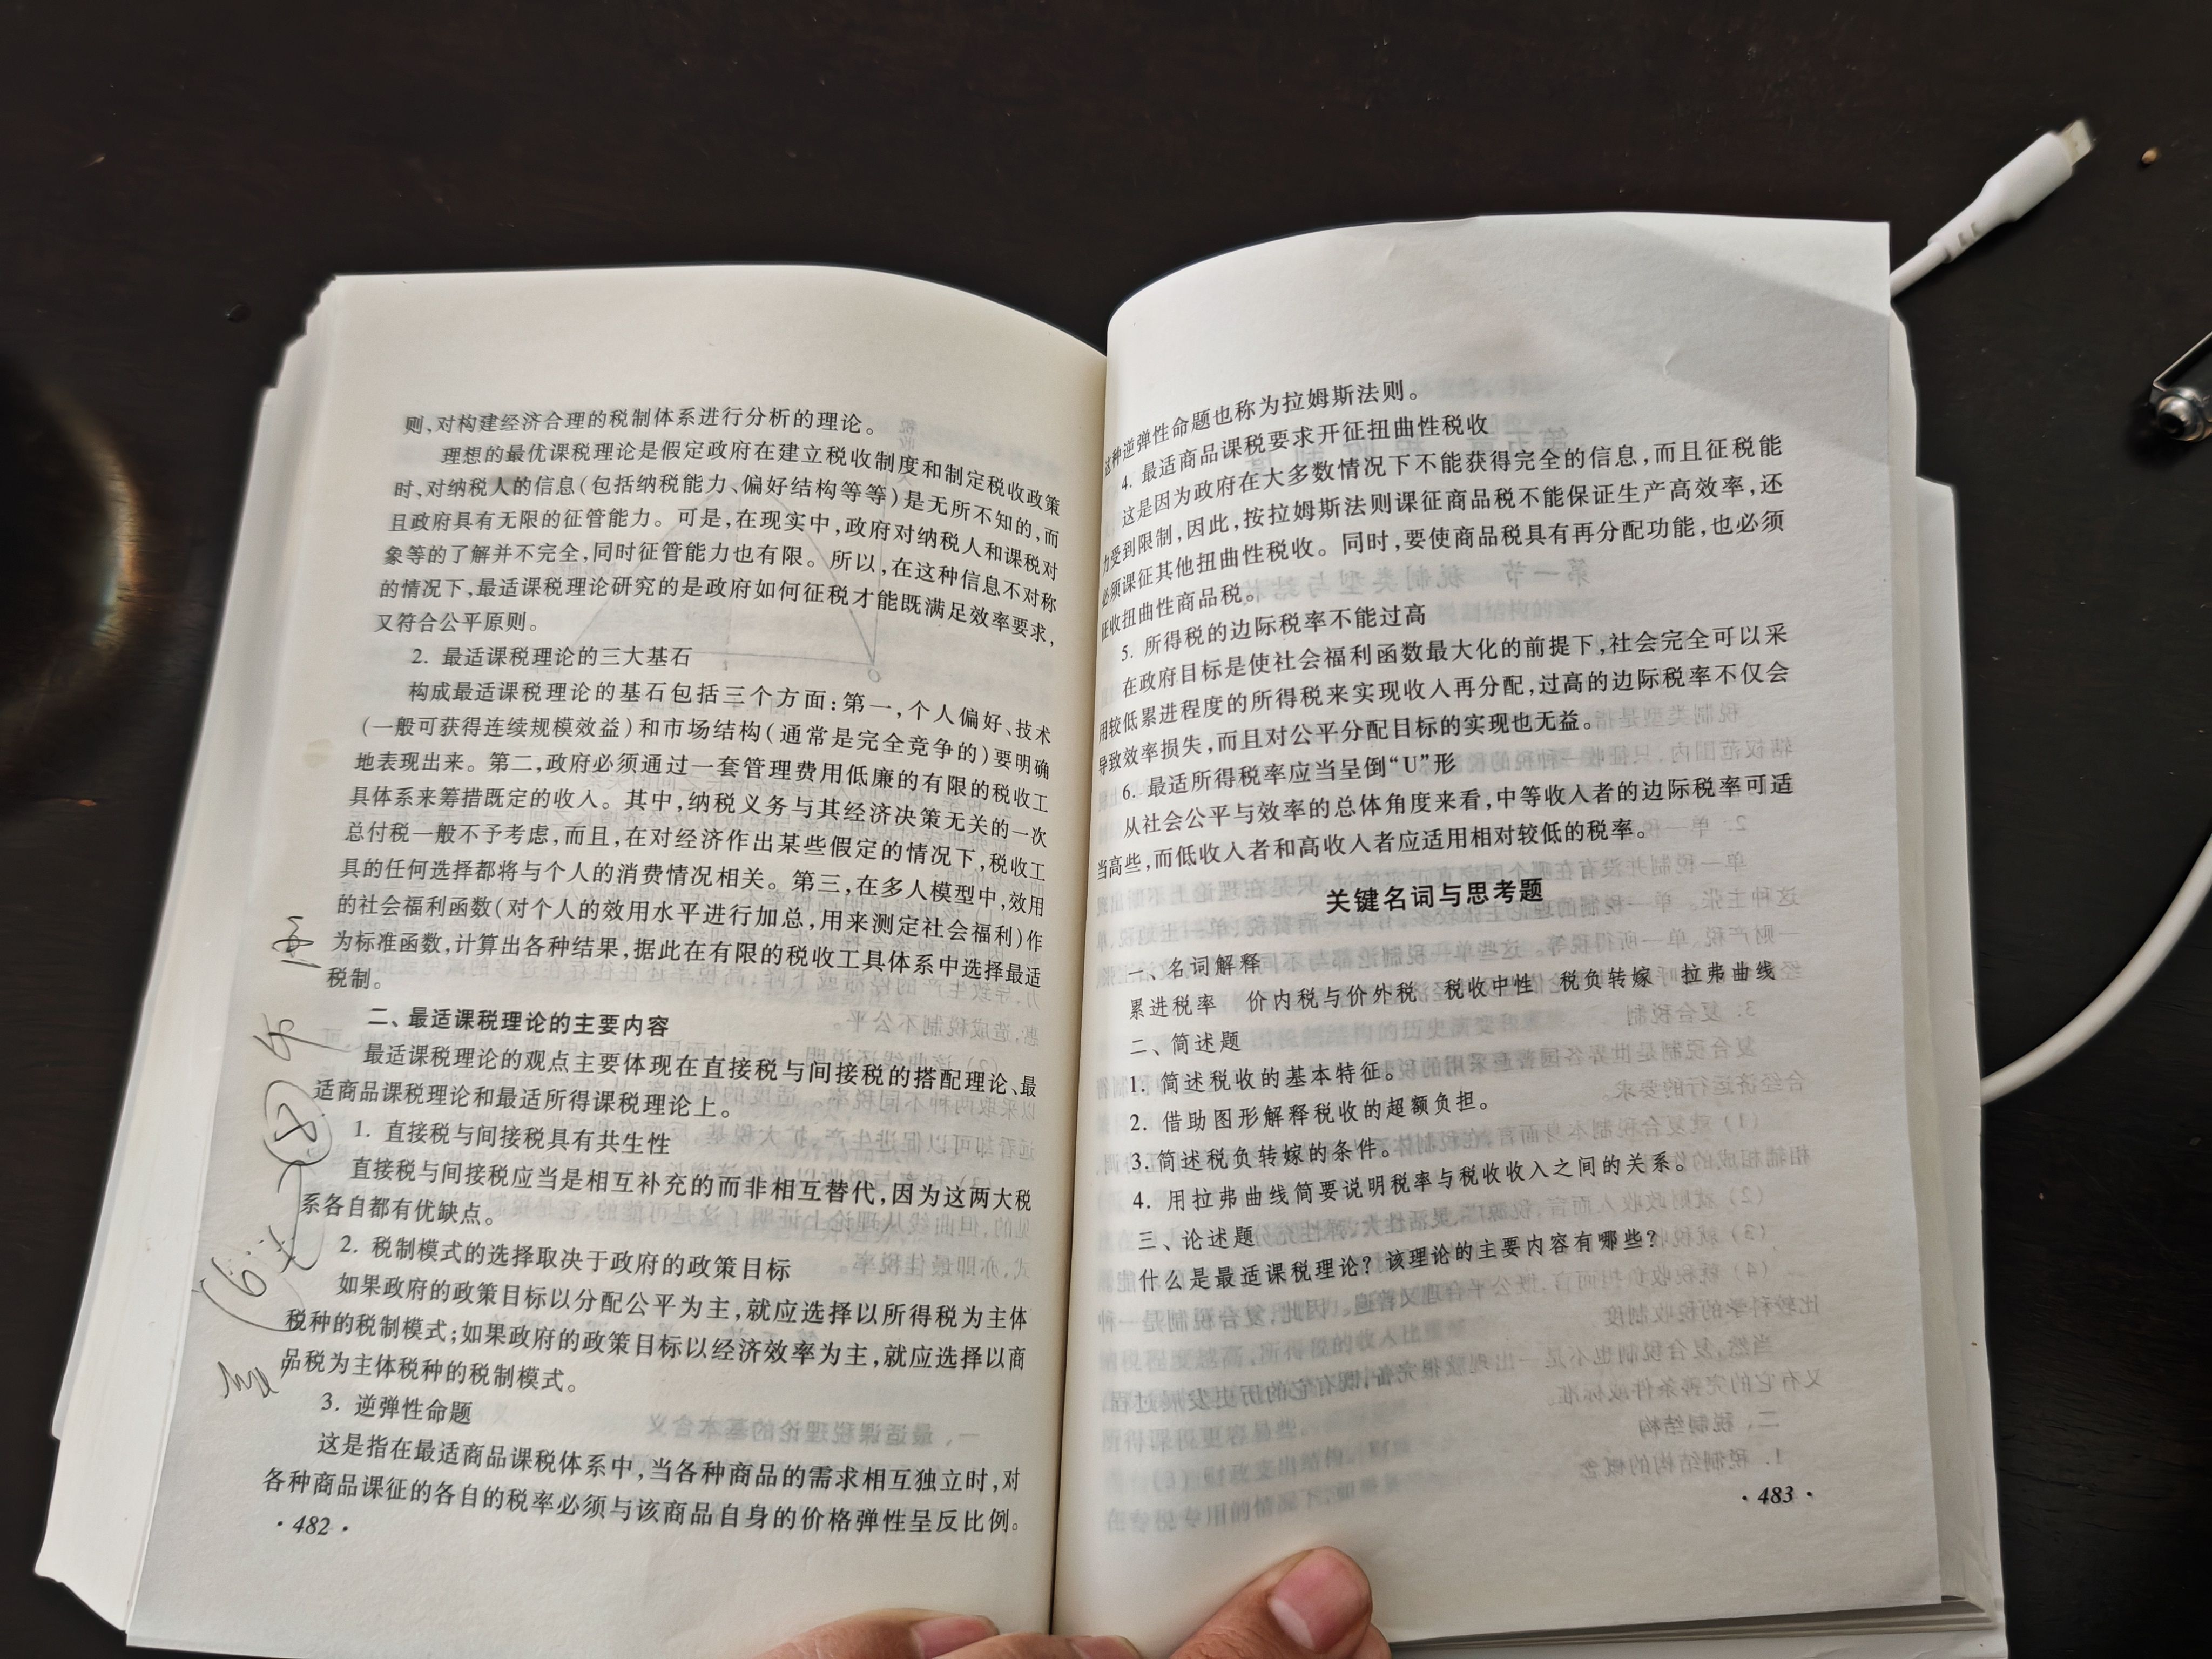 则,对构建经济合理的税制体系进行分析的理论。
理想的最优课税理论是假定政府在建立税收制度和制定税收政策
时,对纳税人的信息(包括纳税能力、偏好结构等等)是无所不知的,而
且政府具有无限的征管能力。可是,在现实中,政府对纳税人和课税对
象等的了解并不完全,同时征管能力也有限。所以,在这种信息不对称
的情况下,最适课税理论研究的是政府如何征税才能既满足效率要求,
又符合公平原则。
2. 最适课税理论的三大基石
构成最适课税理论的基石包括三个方面:第一,个人偏好、技术
(一般可获得连续规模效益)和市场结构(通常是完全竞争的)要明确
地表现出来。第二,政府必须通过一套管理费用低廉的有限的税收工
具体系来筹措既定的收入。其中,纳税义务与其经济决策无关的一次
总付税一般不予考虑,而且,在对经济作出某些假定的情况下,税收工
具的任何选择都将与个人的消费情况相关。第三,在多人模型中,效用
的社会福利函数(对个人的效用水平进行加总,用来测定社会福利)作
为标准函数,计算出各种结果,据此在有限的税收工具体系中选择最适
税制。
二、最适课税理论的主要内容
最适课税理论的观点主要体现在直接税与间接税的搭配理论、最
适商品课税理论和最适所得课税理论上。
1. 直接税与间接税具有共生性
直接税与间接税应当是相互补充的而非相互替代,因为这两大税
系各自都有优缺点。
2. 税制模式的选择取决于政府的政策目标
如果政府的政策目标以分配公平为主,就应选择以所得税为主体
税种的税制模式;如果政府的政策目标以经济效率为主,就应选择以商
品税为主体税种的税制模式。
3. 逆弹性命题
这是指在最适商品课税体系中,当各种商品的需求相互独立时,对
各种商品课征的各自的税率必须与该商品自身的价格弹性呈反比例。
· 482 ·
这种逆弹性命题也称为拉姆斯法则。
4. 最适商品课税要求开征扭曲性税收
这是因为政府在大多数情况下不能获得完全的信息,而且征税能
力受到限制,因此,按拉姆斯法则课征商品税不能保证生产高效率,还
必须课征其他扭曲性税收。同时,要使商品税具有再分配功能,也必须
征收扭曲性商品税。
5. 所得税的边际税率不能过高
在政府目标是使社会福利函数最大化的前提下,社会完全可以采
用较低累进程度的所得税来实现收入再分配,过高的边际税率不仅会
导致效率损失,而且对公平分配目标的实现也无益。
6. 最适所得税率应当呈倒“U”形
从社会公平与效率的总体角度来看,中等收入者的边际税率可适
当高些,而低收入者和高收入者应适用相对较低的税率。
关键名词与思考题
一、名词解释
累进税率 价内税与价外税 税收中性 税负转嫁 拉弗曲线
二、简述题
1. 简述税收的基本特征。
2. 借助图形解释税收的超额负担。
3. 简述税负转嫁的条件。
4. 用拉弗曲线简要说明税率与税收收入之间的关系。
三、论述题
什么是最适课税理论? 该理论的主要内容有哪些?
· 483 ·